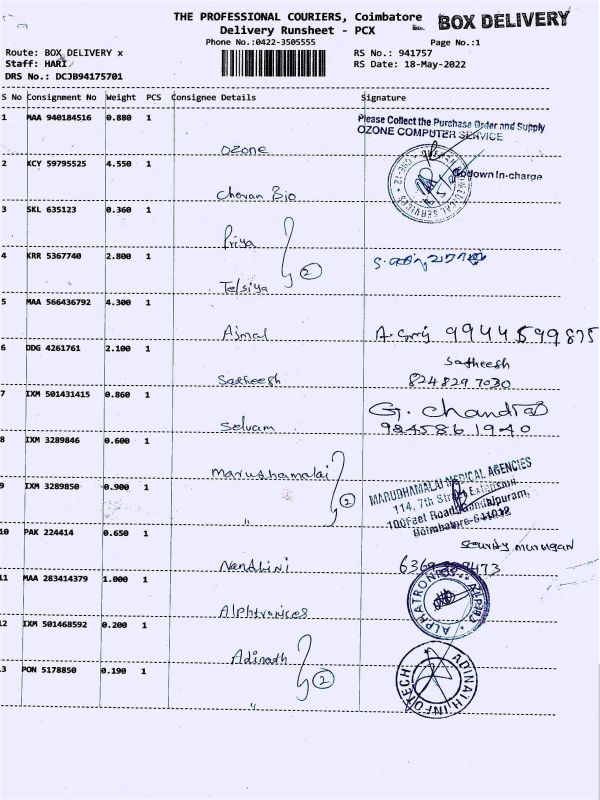 THE PROFESSIONAL COURIERS, Coimbatore
BOX DELIVERY
Delivery Runsheet - PCX
Phone No.:0422-3505555
Page No.:1
Route: BOX DELIVERY x
RS No.: 941757
Staff: HARI
RS Date: 18-May-2022
DRS No.: DCJB94175701
S No Consignment No Weight PCS Consignee Details Signature
1 MAA 940184516 0.880 1
Please Collect the Purchase Order and Supply
OZONE COMPUTER SERVICE
Ozone
2 KCY 59795525 4.550 1
Godown In-charge
Chevan Bio
3 SKL 635123 0.360 1
Priya
4 KRR 5367740 2.800 1
2
Telsiya
5 MAA 566436792 4.300 1
Ajmal
9944599875
6 DDG 4261761 2.100 1
Satheesh
Satheesh
824829 7030
7 IXM 501431415 0.860 1
G. Chandra
Selvam
984586 1940
8 IXM 3289846 0.600 1
Marudhamalai
MARUDHAMALAI MEDICAL AGENCIES
9 IXM 3289850 0.900 1
114, 7th Street Extension
2
100Feet Road, Gandhipuram,
"
Coimbatore-641012
10 PAK 224414 0.650 1
Security murugan
Nandhini
11 MAA 283414379 1.000 1
ALPHATRONICS
Alphtronices
12 IXM 501468592 0.200 1
Adinadh
13 PON 5178850 0.190 1
2
ADINATH INFOTECH
"